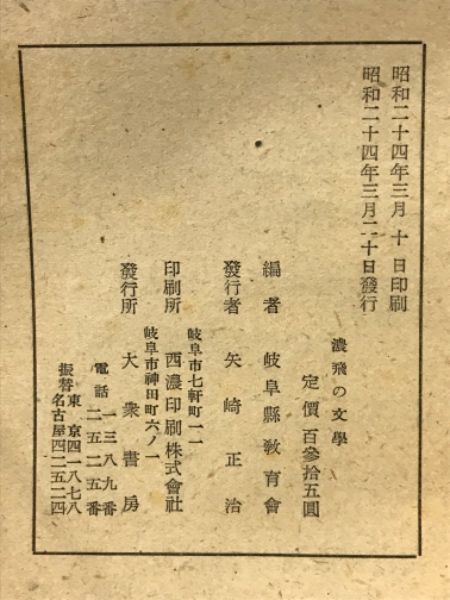 昭和二十四年三月十日印刷
昭和二十四年三月二十日發行
濃飛の文學
定價百參拾五圓
編者 岐阜縣敎育會
發行者 矢崎正治
岐阜市七軒町一二
印刷所 西濃印刷株式會社
岐阜市神田町六ノ一
發行所 大衆書房
電話 一三八九番
二五二五番
振替 東京四一八七八
名古屋四二五二四